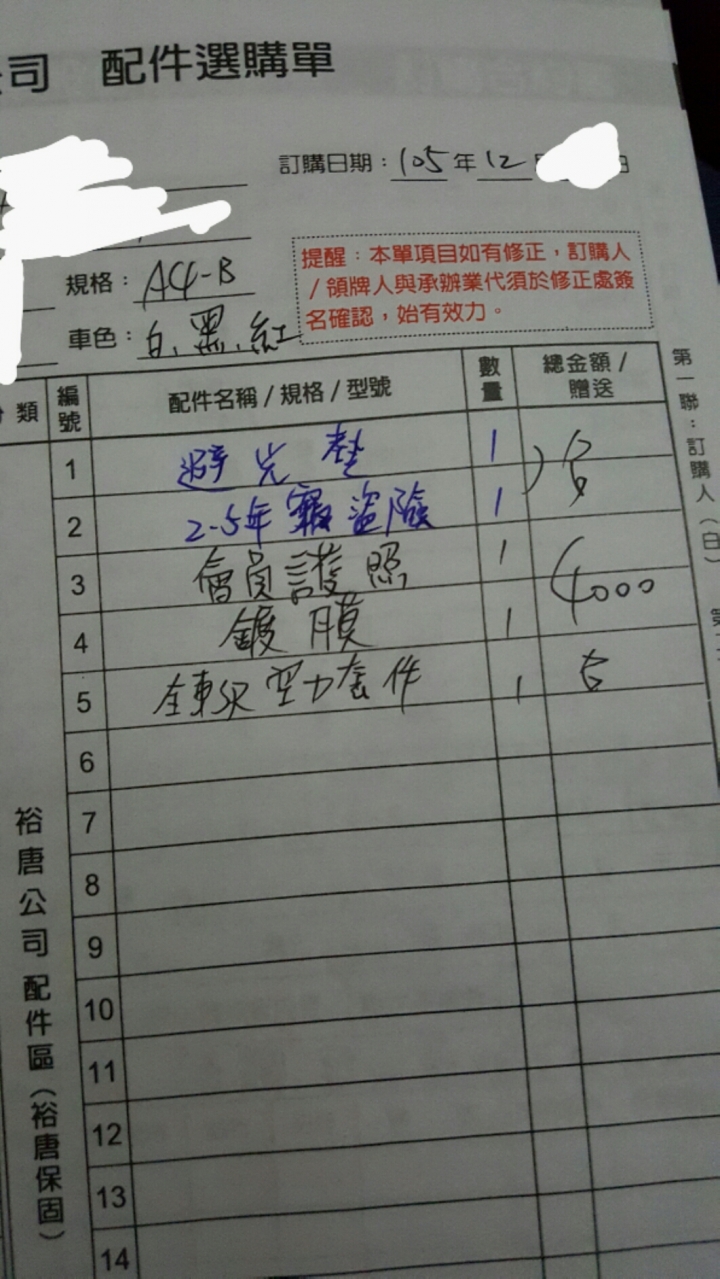 司 配件選購單
訂購日期：105年12
規格：A4-B
車色：白、黑、紅
提醒：本單項目如有修正，訂購人
/領牌人與承辦業代須於修正處簽
名確認，始有效力。
類 編號 配件名稱/規格/型號 數量 總金額/贈送
1 避光墊 1
2 2-5年竊盜險 1
3 會員護照 1
4 鍍膜 1 4000
5 全車 空力套件 1
6
7
8
9
10
11
12
13
14
裕唐公司配件區（裕唐保固）
第一聯：訂購人（白）